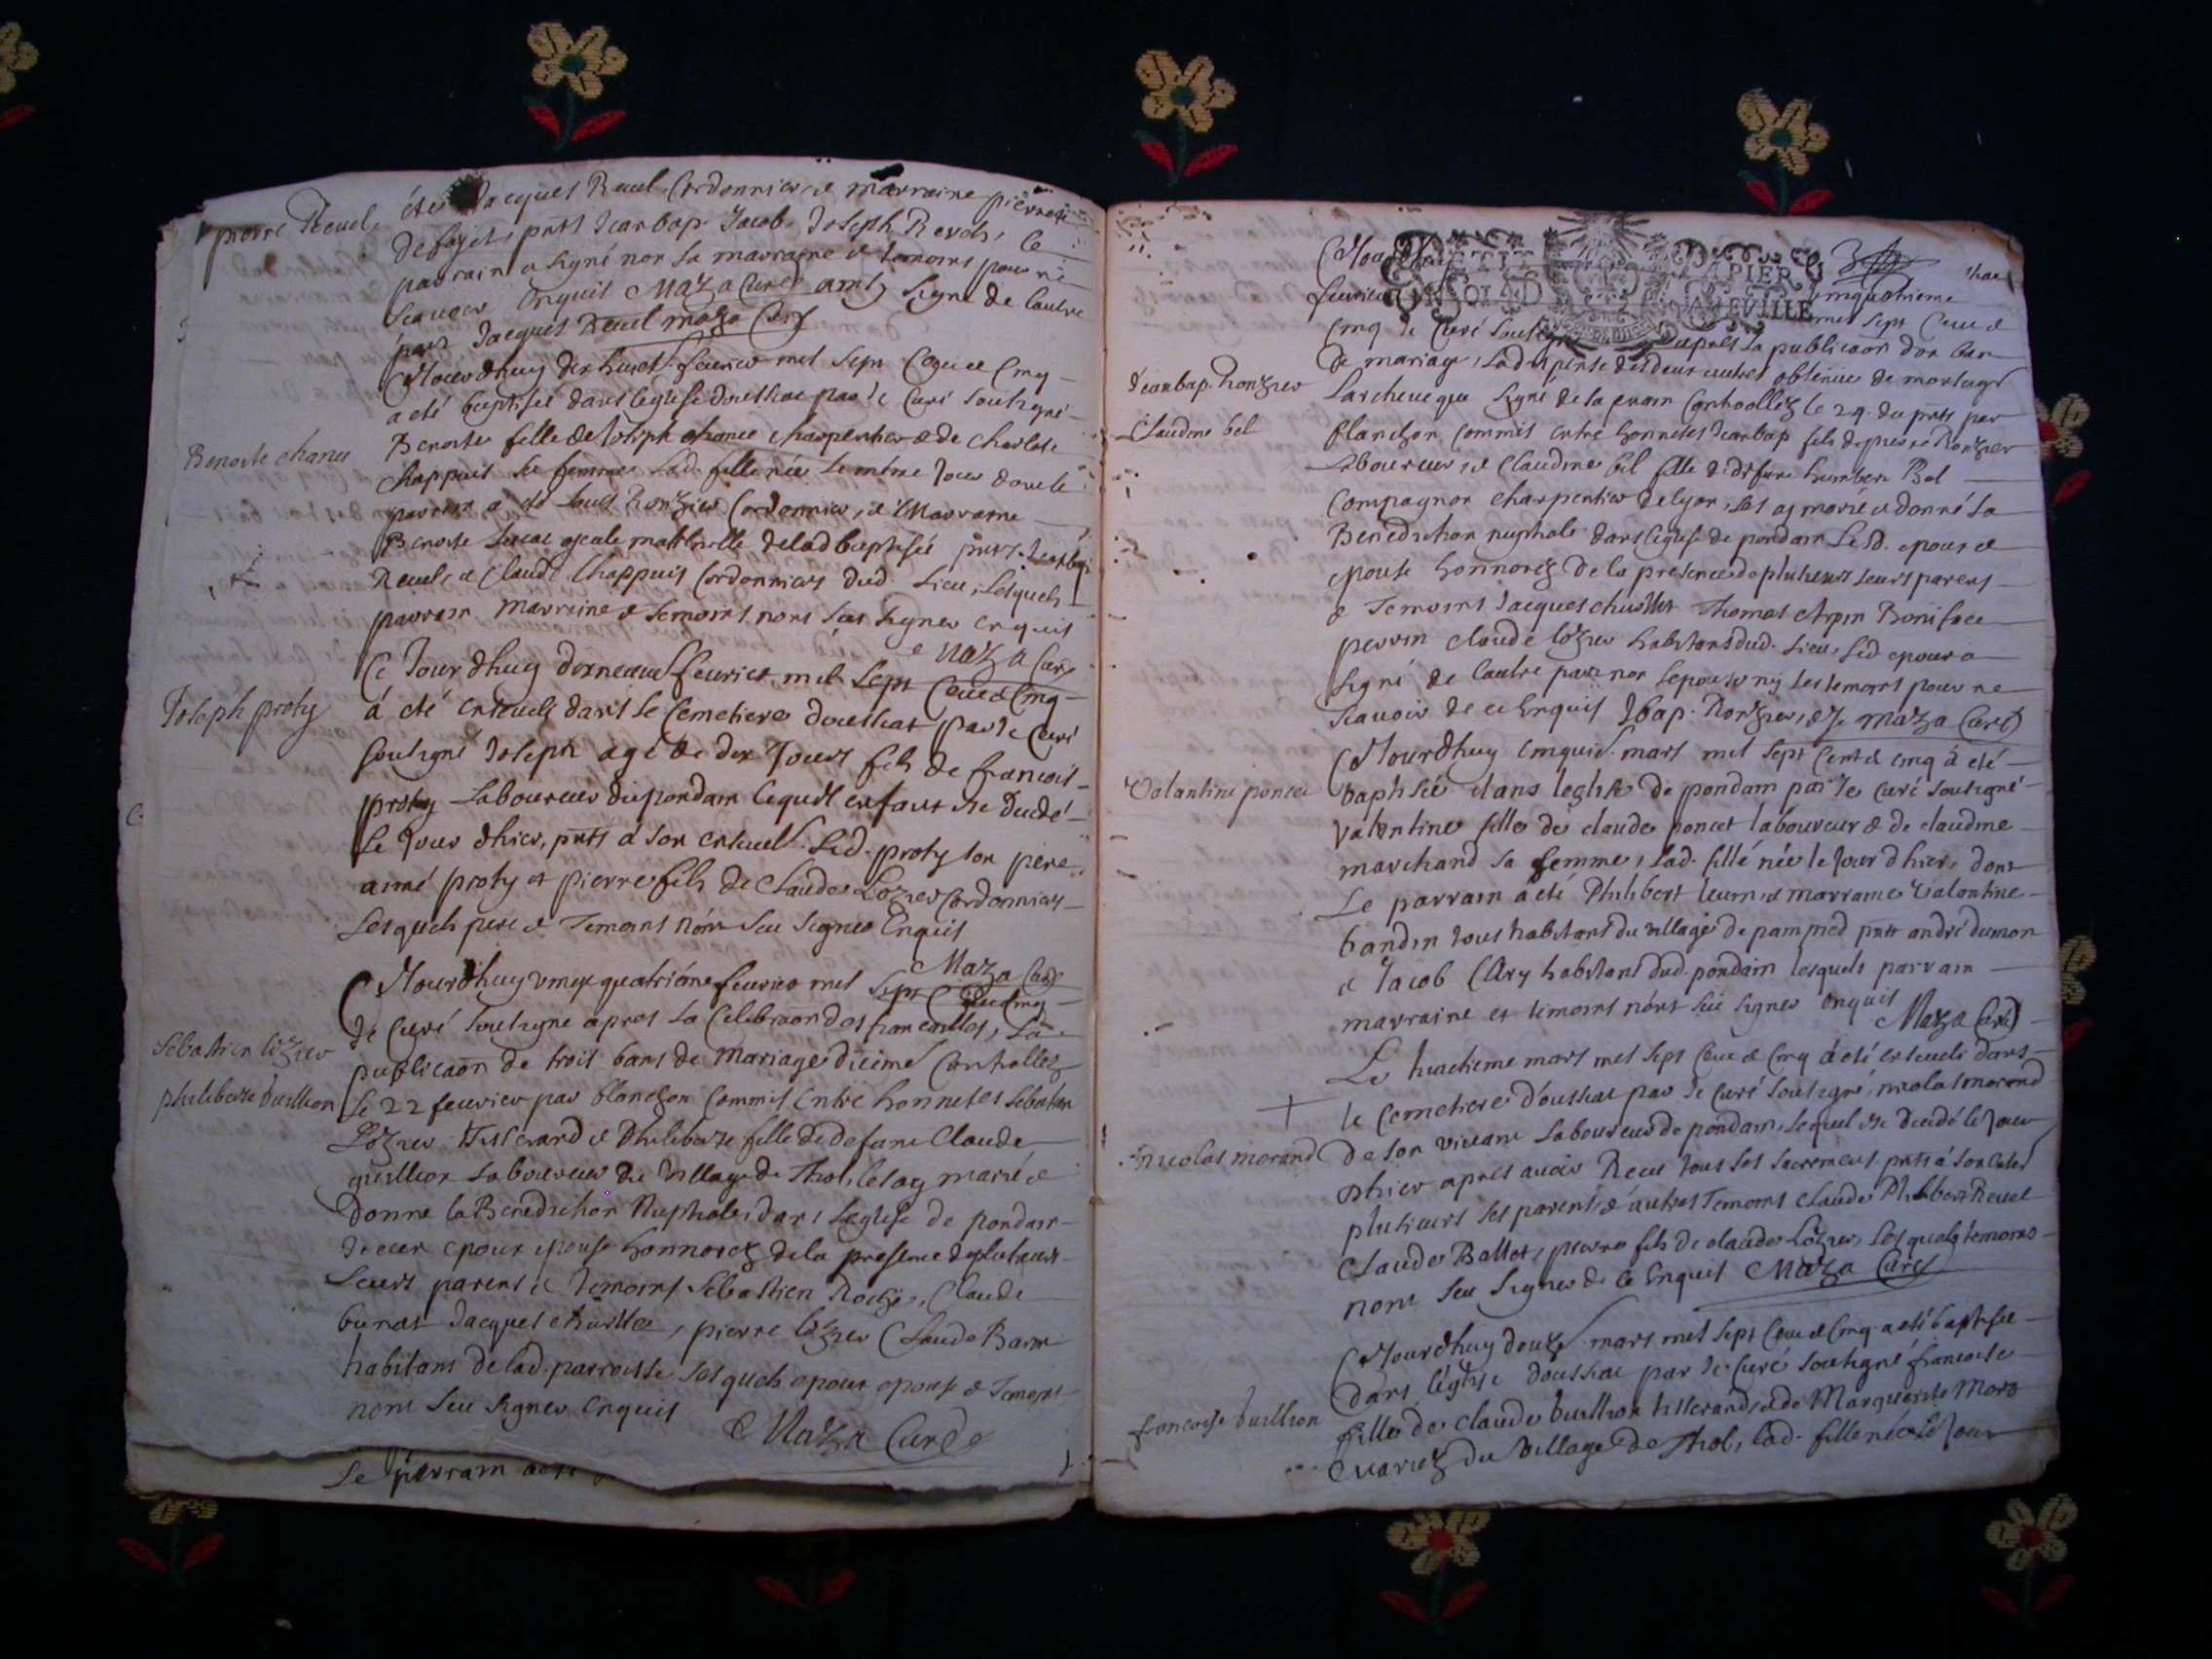 pierre Reuel
été Jacques Reuel Cordonnier, et marraine pierrette
de fayet, pntt Jean bap. Jacob, Joseph Revol, le
parrain a signé non la marraine et temoins pour ne
scauoir enquis Maza Curé ainsy signé de lautre
part Jacques Reuel maza Curé
Ce Jourdhuy dix huict feurier mil sept Cent et Cinq
a eté baptisée dans leglise doussiat par Je Curé soussigné
Benoite chanel
Benoite fille de Joseph chanel charpentier et de charlote
chappuis sa femme lad. fille née le même Jour dont le
parrain a eté Ronzier Cordonnier, et Marraine
Benoite ayeule maternelle de lad baptisée pntt. Jean bap.
Reuel, et Claude Chappuis Cordonniers dud. Lieu, Lesquels
parrain marraine et temoins nont sceu signer enquis
Maza Curé
Ce Jourdhuy dixneuue feurier mil sept Cent et Cinq
Joseph proty
a eté enseueli dans le Cemetiere doussiat par Je Curé
soussigné Joseph agé de dix Jours fils de francois
proty Laboureur du pondain lequel enfant est decedé
le Jour dhier, pntt a son enseuel. led. proty son pere
aimé proty et pierre fils de Claude Lozier Cordonniers
Lesquels pere et temoins nont sceu signer Enquis
Maza Curé
Ce Jourdhuy vingt quatrième feurier mil sept Cent et Cinq
Je Curé soussigné apres la Celebraon des fiancailles, La
Sebastien lozier
publicaon de trois bans de Mariage Controllez
philiberte buillion
le 22 feurier par blanchon Commis Entre honnetes Sebastien
Lozier Tisserand et Philiberte fille de defunt Claude
buillion Laboureur du village de Thol, les ay marié et
donné la Benediction Nuptiale, dans Leglise de pondain
epoux epouse honnorez de la presence de plusieurs
Leurs parens et temoins Sebastien Claude
bunat Jacques pierre lozier Claude
habitans de lad. parroisse Lesquels epoux epouse et temoins
nont sceu signer enquis
Maza Curé
Le parram
PETIT PAPIER
SOL D GNEVILLE
feurier mil sept Cent et
Cinq Je Curé soussigné apres la publicaon dun ban
de mariage, la dispense des deux autres obtenue de monseigr
Jean bap. Ronzier
Larcheueque signé de la Controllez le 24. du pntt par
Claudine bel
blanchon Commis entre honnetes Jean bap fils de pierre Ronzier
Laboureur, et Claudine bel fille de defunt humbert Bel
Compagnon charpentier de lyon, les ay marié et donné la
Benediction nuptiale dans leglise de pondain Lesd. epoux et
epouse honnorez de la presence de plusieurs Leurs parens
et temoins Jacques Thomas Boniface
perrin claude lozier habitans dud. lieu, led epoux a
signé de lautre part non lepouse ny les temoins pour ne
scauoir de ce enquis Jbap. Ronzier, et Je maza Curé
Ce Jourdhuy cinquie. mars mil sept Cent et cinq a eté
Valantine poncet
baptisée dans leglise de pondain par Je curé soussigné
valentine fille de claude poncet laboureur et de claudine
marchand sa femme, lad. fille née le Jour dhier, dont
Le parrain a eté Philibert et marraine Valantine
bandin tous habitans du village de pntt andré dumon
et Jacob habitans dud. pondain lesquels parrain
marraine et temoins nont sceu signer enquis
Maza Curé
Le huictieme mars mil sept Cent et Cinq a eté enseueli dans
le Cemetiere doussiat par Je Curé soussigné, nicolas morand
Nicolas morand
de son viuant Laboureur de pondain, lequel est decedé le Jour
dhier apres auoir Receu tous les sacremens pntt a son enseuel
plusieurs ses parens, et autres temoins claude Philibert Reuel
Claude Ballet, pierre fils de claude Lozier, Lesquels temoins
nont sceu signer de ce Enquis Maza Curé
Ce Jourdhuy douze. mars mil sept Cent et Cinq a eté baptisée
dans leglise doussiat par Je Curé soussigné francoise
francoise buillion
fille de claude buillion tisserand, et de Marguerite
mariez du village de Thol, lad. fille née le Jour